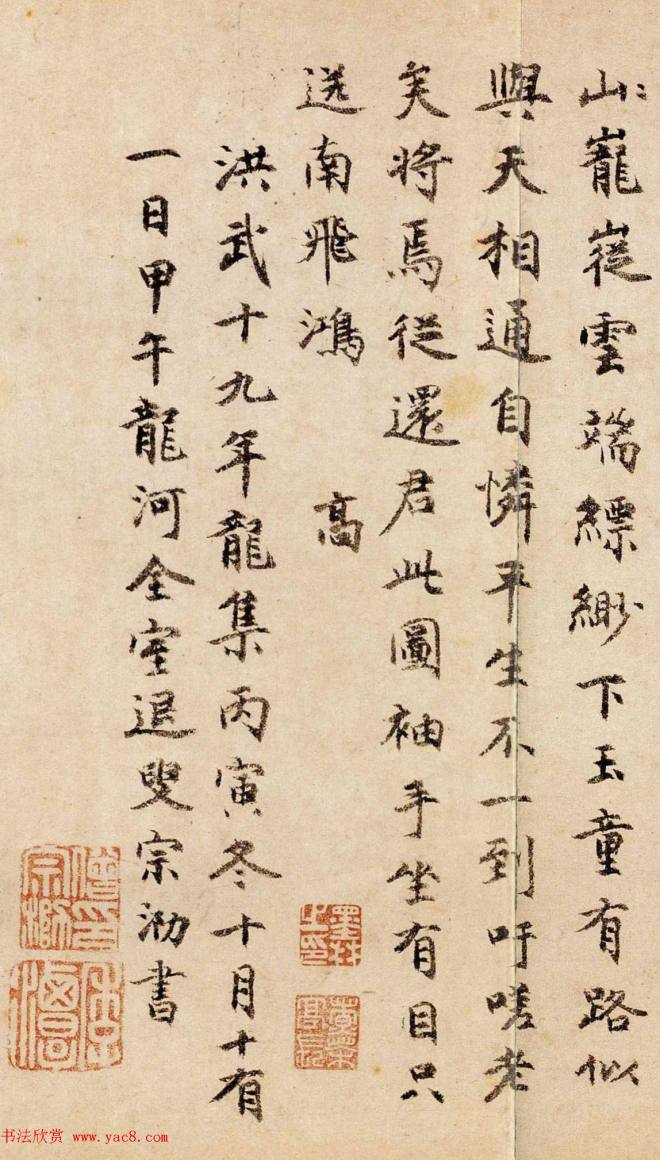 山〻巃嵸雲端縹緲下玉童有路似
與天相通自憐平生不一到吁嗟老
矣將焉從還君此圖袖手坐有目只
送南飛鴻
高
洪武十九年龍集丙寅冬十月十有
一日甲午龍河全室退叟宗泐書
书法欣赏 www.yac8.com